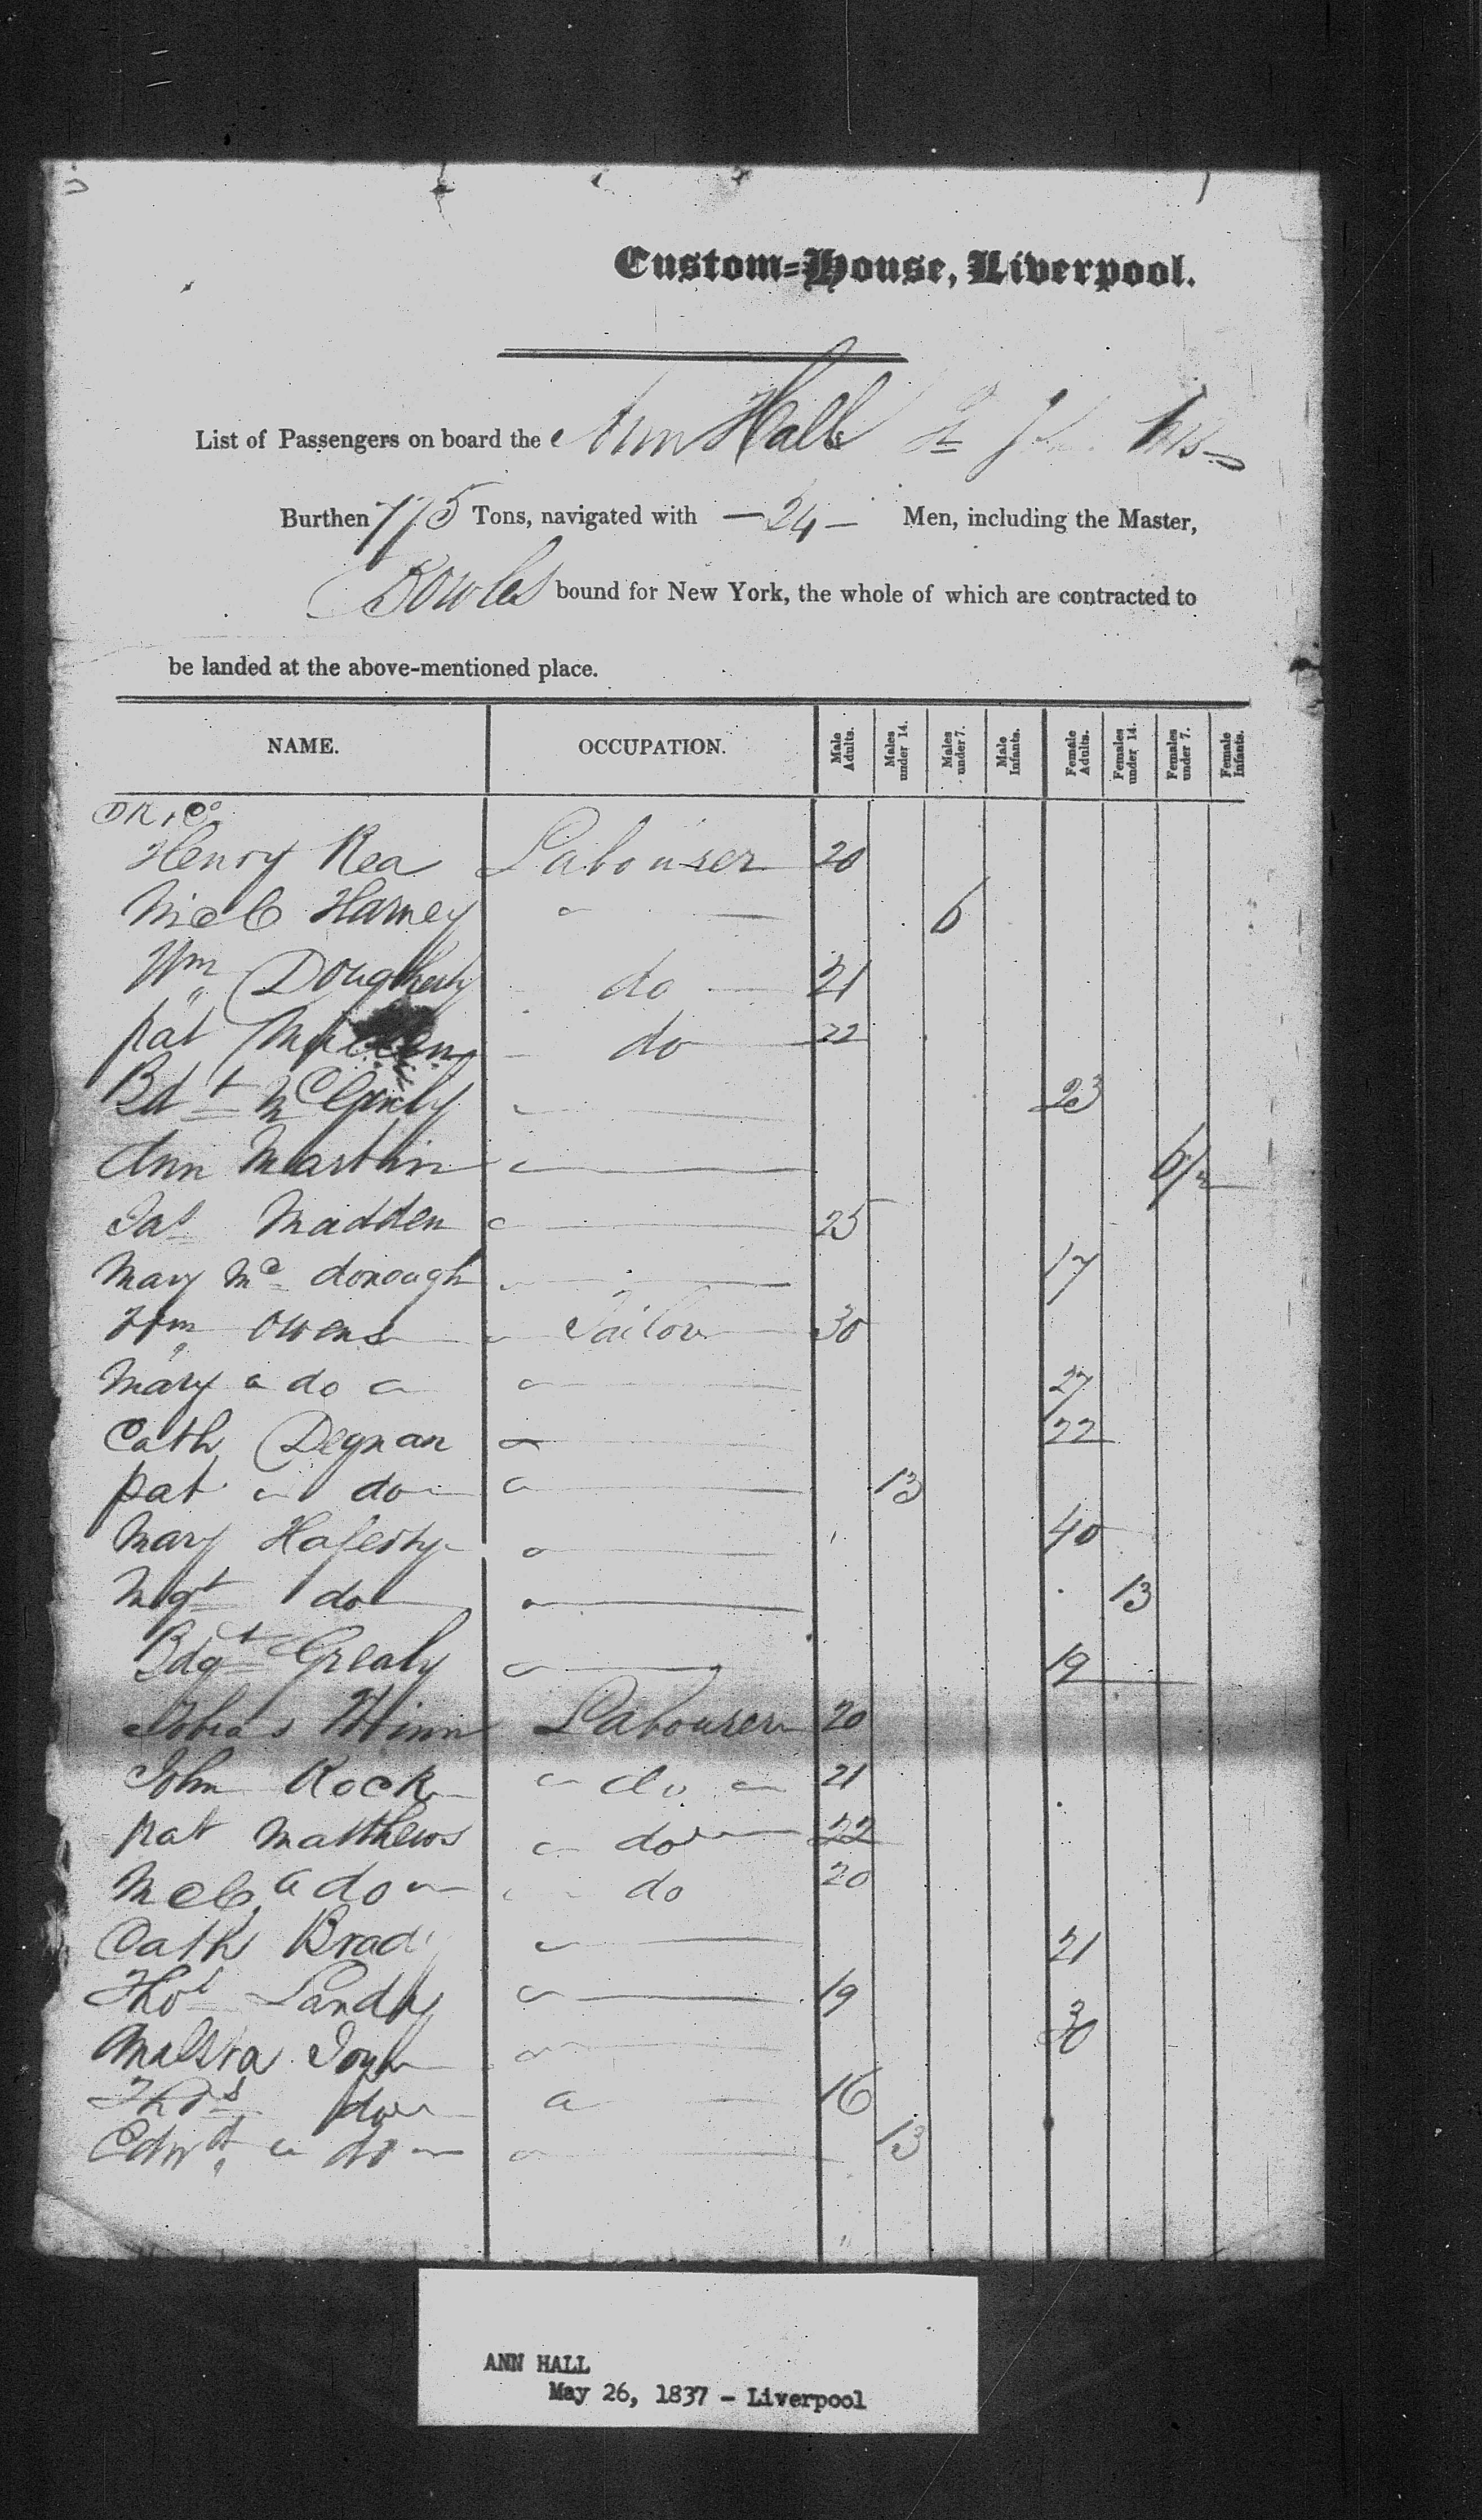 Custom-House, Liverpool.
List of Passengers on board the Ann Hall
Burthen 775 Tons, navigated with — 24 — Men, including the Master,
Bowles bound for New York, the whole of which are contracted to
be landed at the above-mentioned place.
NAME. OCCUPATION. Male Adults. Males under 14. Males under 7. Male Infants. Female Adults. Females under 14. Females under 7. Female Infants.
Henry Rea Labourer 20
Harney 6
Wm Dougherty do 21
pat do 22
Bdt 23
Ann Martin
Jas Madden 25
Mary Mc donough 17
Wm Owens Tailor 30
Mary do 27
Cath Degnan 22
pat do 13
Mary Hafesty 40
Mgt do 13
Bdgt Grealy 19
Tobias Labourer 20
John Rock do 21
pat Matthews do 22
do do 20
Cath Brad 21
Thos Landy 19
30
Thos do 16
Edwd do 13
ANN HALL
May 26, 1837 - Liverpool